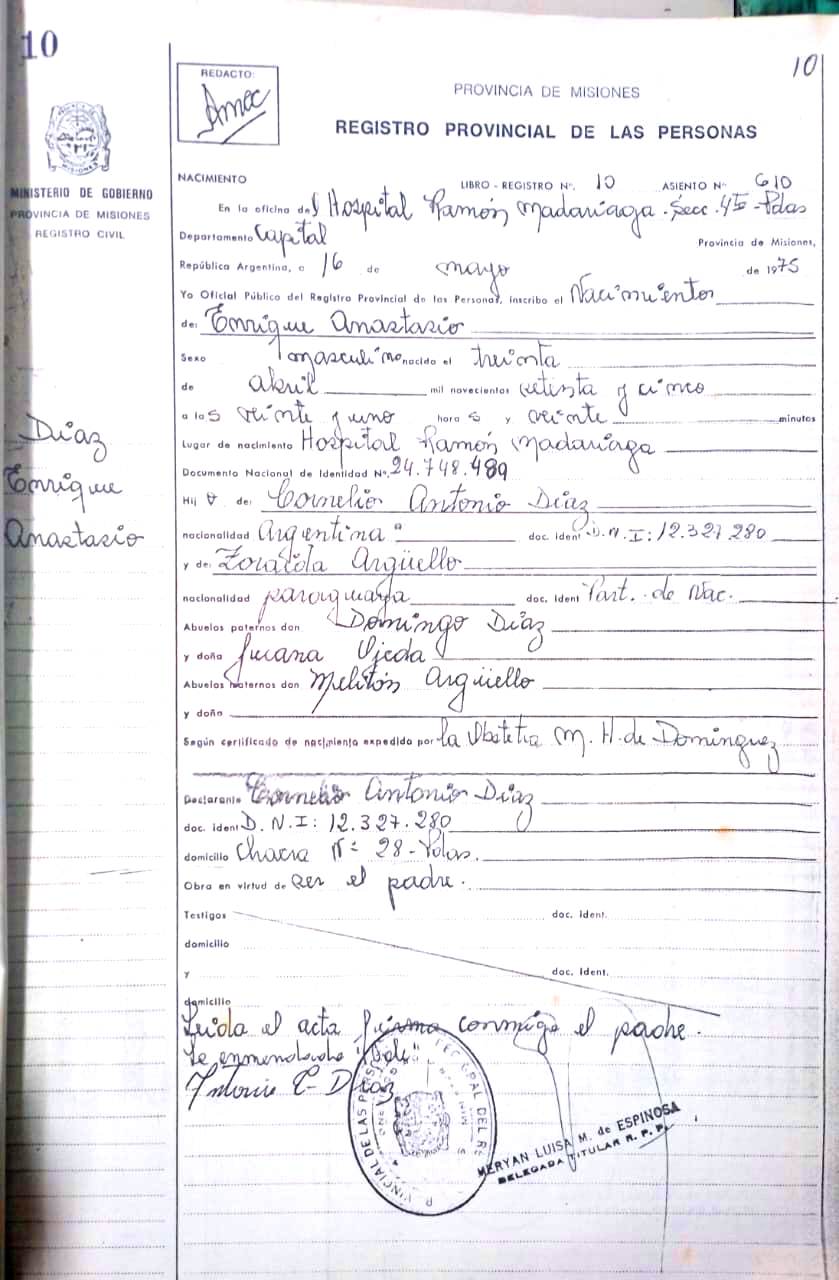 10
10
REDACTO:
PROVINCIA DE MISIONES
REGISTRO PROVINCIAL DE LAS PERSONAS
MINISTERIO DE GOBIERNO
PROVINCIA DE MISIONES
REGISTRO CIVIL
NACIMIENTO
LIBRO - REGISTRO Nº. 10 ASIENTO Nº 610
En la oficina del Hospital Ramón Madariaga - Secc. 4ta - Pdas
Departamento Capital Provincia de Misiones,
República Argentina, a 16 de mayo de 1975
Yo Oficial Público del Registro Provincial de las Personas, inscribo el Nacimiento
de: Enrique Anastasio
Sexo masculino nacido el treinta
de abril mil novecientos setenta y cinco
a las veinte y uno horas y veinte minutos
Lugar de nacimiento Hospital Ramón Madariaga
Documento Nacional de Identidad Nº. 24.748.489
Díaz
Enrique
Anastasio
Hijo de: Cornelio Antonio Díaz
nacionalidad Argentina doc. ident D.N.I: 12.327.280
y de: Zoraida Argüello
nacionalidad paraguaya doc. ident Part. de Nac.
Abuelos paternos don Domingo Díaz
y doña Juana Ojeda
Abuelos maternos don Melitón Argüello
y doña
Según certificado de nacimiento expedido por la Obstetra M. H. de Dominguez
Declarante Cornelio Antonio Díaz
doc. ident D.N.I: 12.327.280
domicilio Chacra Nº 28 - Pdas.
Obra en virtud de ser el padre.
Testigos doc. Ident.
domicilio
y doc. Ident.
domicilio
Leída el acta firma conmigo el padre.
Antonio C. Díaz
MERYAN LUISA M. de ESPINOSA
DELEGADA TITULAR R. P. P.